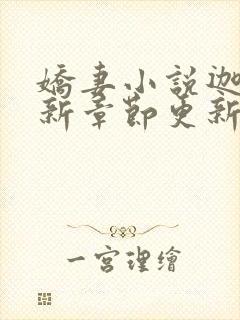 嬌妻小說迦
新章節更新
一宮理繪